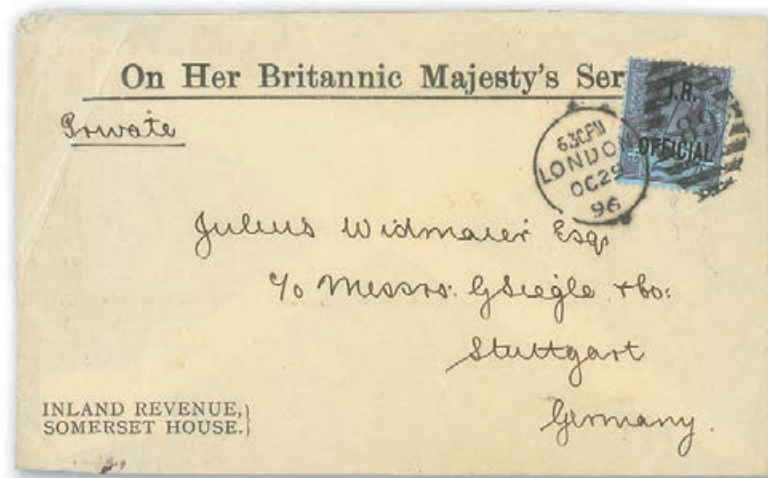 On Her Britannic Majesty's Ser
I.R.
OFFICIAL
Private
6.30PM
LONDON
OC 29
96
Julius Widmaier Esq
c/o Messrs. G Siegle & Co:
Stuttgart
Germany.
INLAND REVENUE,
SOMERSET HOUSE.